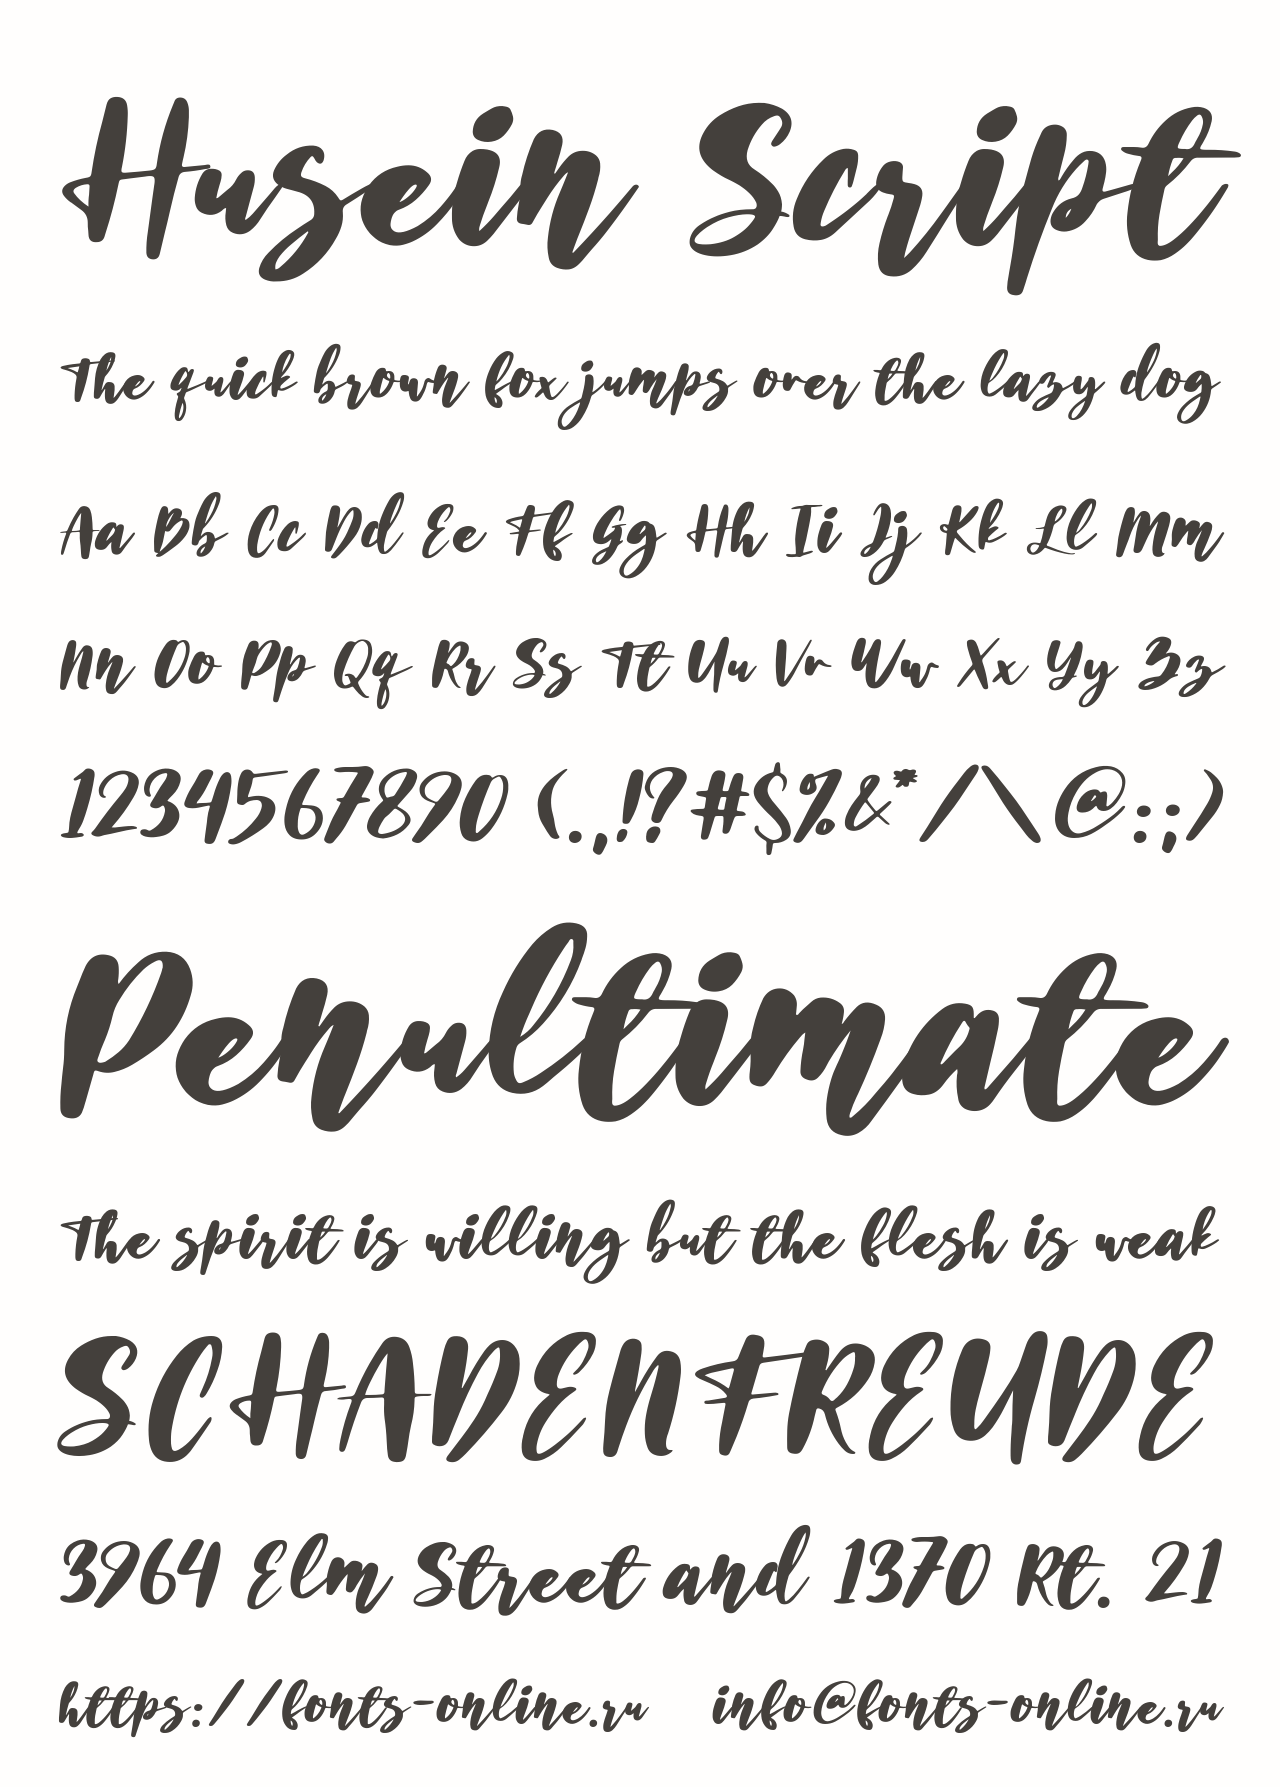 Husein Script
The quick brown fox jumps over the lazy dog
Aa Bb Cc Dd Ee Ff Gg Hh Ii Jj Kk Ll Mm
Nn Oo Pp Qq Rr Ss Tt Uu Vv Ww Xx Yy Zz
1234567890 (.,!?#$%&*/\@:;)
Penultimate
The spirit is willing but the flesh is weak
SCHADENFREUDE
3964 Elm Street and 1370 Rt. 21
https://fonts-online.ru info@fonts-online.ru